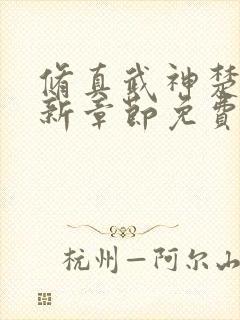 脩真武神楚
新章節免費
杭州—阿尔山